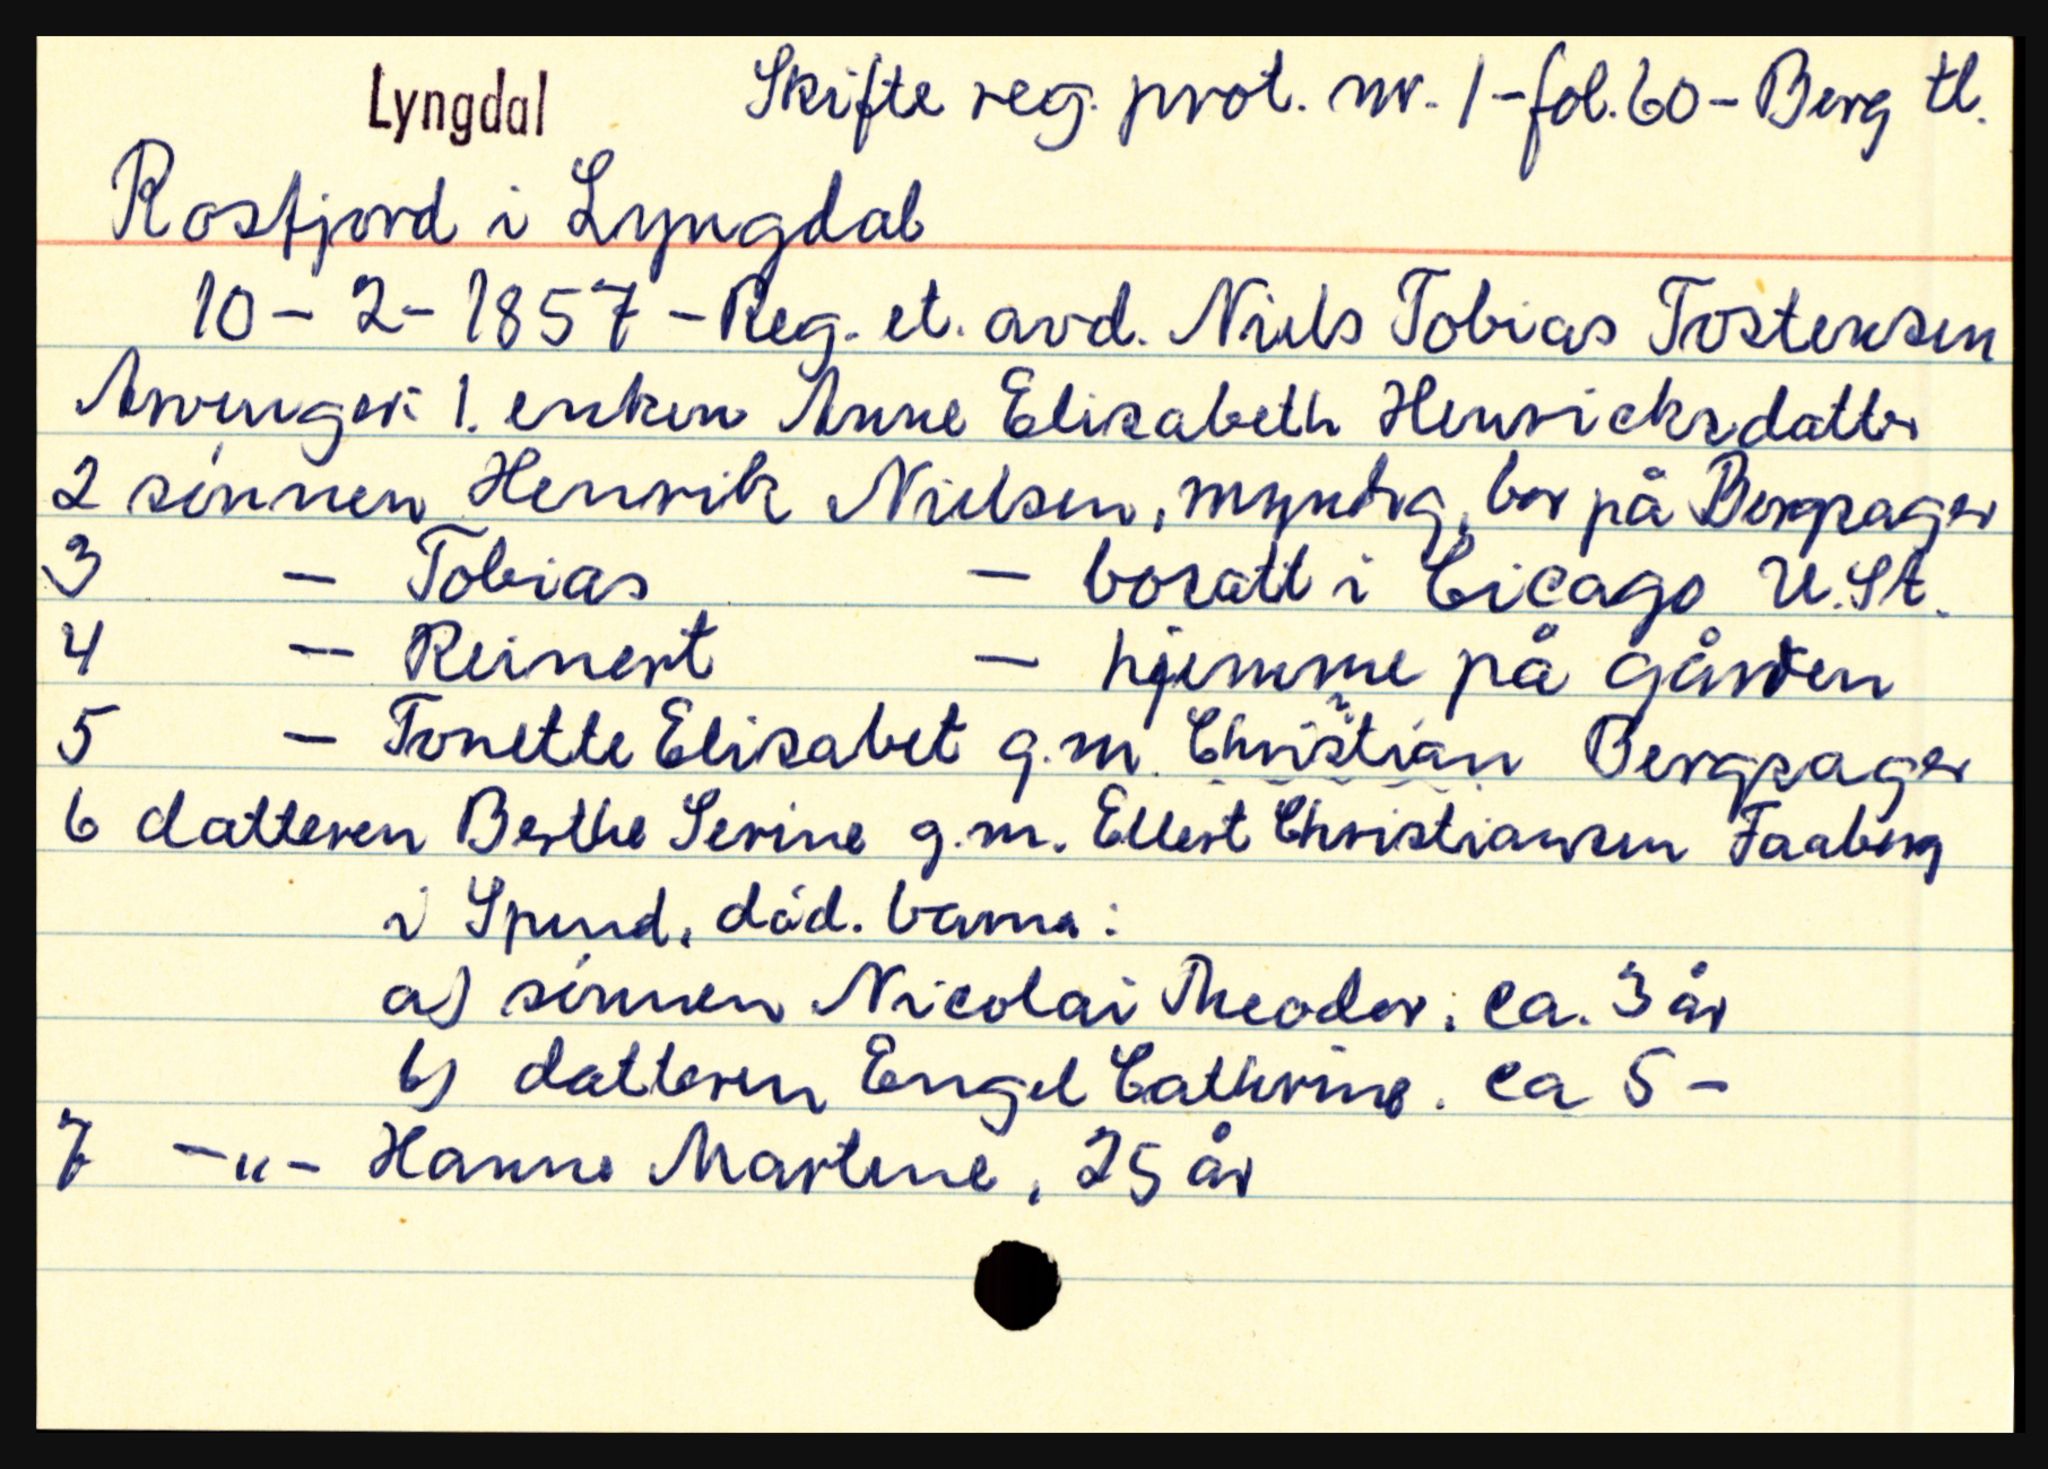 Lyngdal Skifte reg. prot. nr. 1 - fol. 60 - Berg tl.
Rosfjord i Lyngdal
10 - 2 - 1857 - Reg. et. avd. Niels Tobias Tostensen
Arvinger: 1. enken Anne Elisabeth Henricksdatter
2 sønnen Henrik Nielsen, myndig, bor på Bergsager
3 - Tobias - bosatt i Cicago U.St.
4 - Reinert - hjemme på gården
5 - Tonette Elisabet g.m. Christian Bergsager
6 datteren Berthe Serine g.m. Ellert Christiansen Faaberg
i Spind, død. barna:
a) sønnen Nicolai Theodor, ca. 3 år
b) datteren Engel Cathrine. ca 5 -
7 -"- Hanne Martene, 25 år